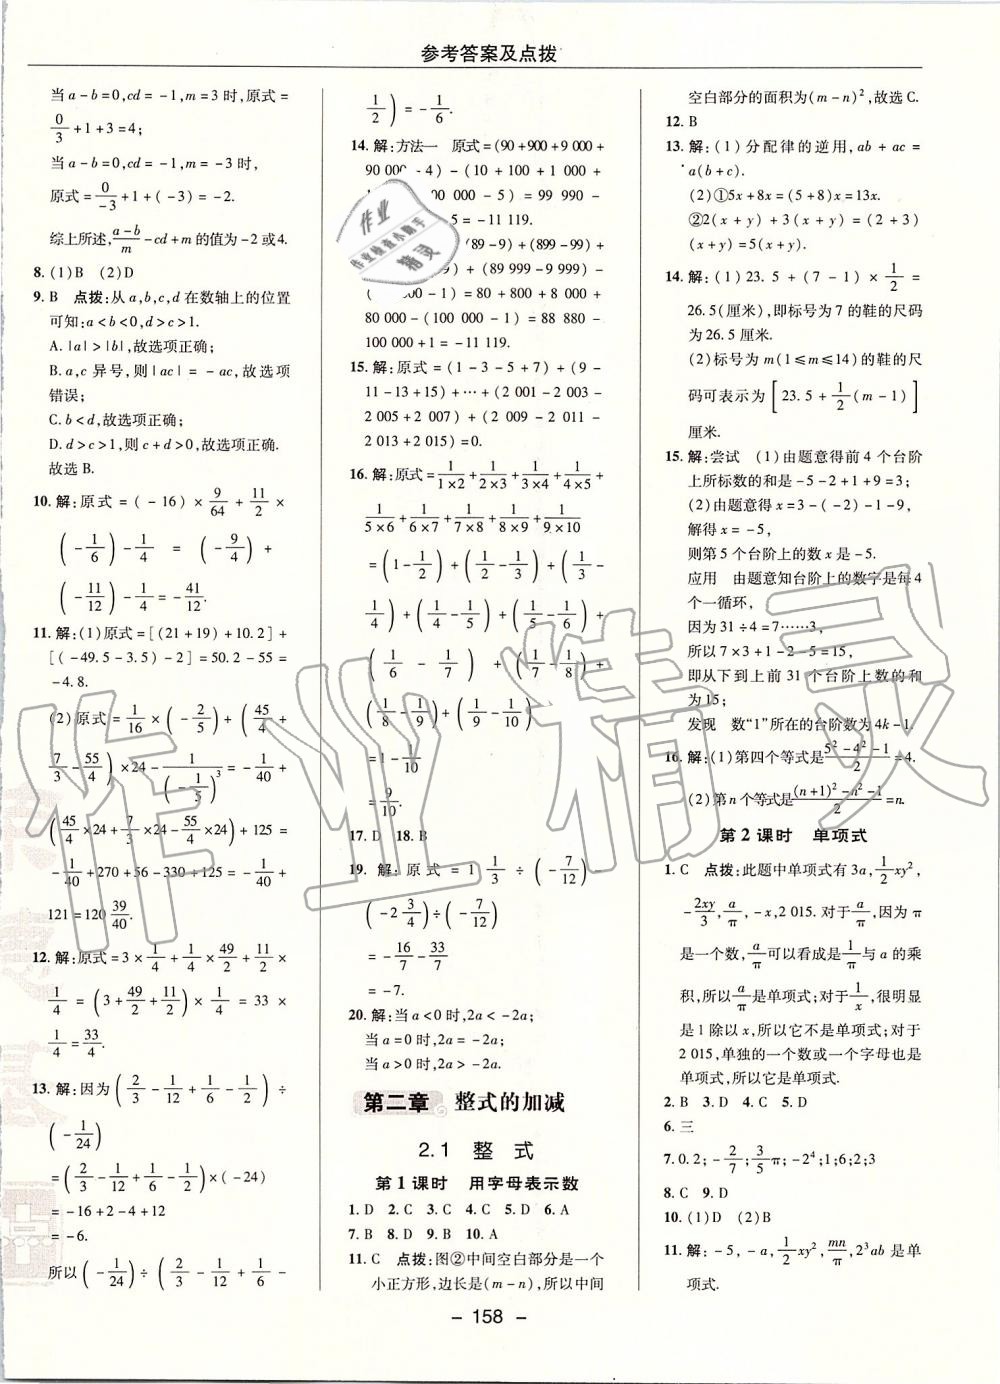 参考答案及点拨
当 a-b=0,cd=-1,m=3 时,原式=
0/3+1+3=4;
当 a-b=0,cd=-1,m=-3 时,
原式=0/-3+1+(-3)=-2.
综上所述,(a-b)/m-cd+m 的值为-2或4.
8. (1)B (2)D
9. B 点拨:从 a,b,c,d 在数轴上的位置
可知:a<b<0,d>c>1.
A.|a|>|b|,故选项正确;
B.a,c 异号,则|ac|=-ac,故选项
错误;
C.b<d,故选项正确;
D.d>c>1,则 c+d>0,故选项正确.
故选 B.
10. 解:原式=(-16)×9/64+11/2×
(-1/6)-1/4=(-9/4)+
(-11/12)-1/4=-41/12.
11. 解:(1)原式=[(21+19)+10.2]+
[(-49.5-3.5)-2]=50.2-55=
-4.8.
(2)原式=1/16×(-2/5)+(45/4+
7/3-55/4)×24-1/(-1/5)³=-1/40+
(45/4×24+7/3×24-55/4×24)+125=
-1/40+270+56-330+125=
121=120 39/40.
12. 解:原式=3×1/4+1/4×49/2+11/2×
1/4=(3+49/2+11/2)×1/4=33×
1/4=33/4.
13. 解:因为(2/3-1/12+1/6-1/2)÷
(-1/24)
=(2/3-1/12+1/6-1/2)×(-24)
=-16+2-4+12
=-6.
所以(-1/24)÷(2/3-1/12+1/6-
1/2)=-1/6.
14. 解:方法一 原式=(90+900+9 000+
90 000-4)-(10+100+1 000+
000-5)=99 990-
5=-11 119.
(89-9)+(899-99)+
+(89 999-9 999)+
000-1)=88 880-
100 000-(100 000-1)=88 880-
100 000+1=-11 119.
15. 解:原式=(1-3-5+7)+(9-
11-13+15)+…+(2 001-2 003-
2 005+2 007)+(2 009-2 011-
2 013+2 015)=0.
16. 解:原式=1/(1×2)+1/(2×3)+1/(3×4)+1/(4×5)+
1/(5×6)+1/(6×7)+1/(7×8)+1/(8×9)+1/(9×10)
=(1-1/2)+(1/2-1/3)+(1/3-
1/4)+(1/4-1/5)+(1/5-1/6)+
(1/6-1/7)+(1/7-1/8)+
(1/8-1/9)+(1/9-1/10)
=1-1/10
=9/10.
17. D 18. B
19. 解:原式=1 1/3÷(-7/12)+
(-2 3/4)÷(-7/12)
=-16/7-33/7
=-7.
20. 解:当 a<0 时,2a<-2a;
当 a=0 时,2a=-2a;
当 a>0 时,2a>-2a.
第二章 整式的加减
2.1 整 式
第1课时 用字母表示数
1. D 2. C 3. C 4. C 5. D 6. A
7. B 8. B 9. B 10. A
11. C 点拨:图②中间空白部分是一个
小正方形,边长是(m-n),所以中间
空白部分的面积为(m-n)²,故选 C.
12. B
13. 解:(1)分配律的逆用,ab+ac=
a(b+c).
(2)①5x+8x=(5+8)x=13x.
②2(x+y)+3(x+y)=(2+3)
(x+y)=5(x+y).
14. 解:(1)23.5+(7-1)×1/2=
26.5(厘米),即标号为7的鞋的尺码
为26.5厘米.
(2)标号为 m(1≤m≤14)的鞋的尺
码可表示为[23.5+1/2(m-1)]
厘米.
15. 解:尝试 (1)由题意得前4个台阶
上所标数的和是-5-2+1+9=3;
(2)由题意得 x=3-(-2)-1-9,
解得 x=-5,
则第5个台阶上的数 x 是-5.
应用 由题意知台阶上的数字是每4
个一循环,
因为31÷4=7……3,
所以7×3+1-2-5=15,
即从下到上前31个台阶上数的和
为15;
发现 数“1”所在的台阶数为4k-1.
16. 解:(1)第四个等式是(5²-4²-1)/2=4.
(2)第 n 个等式是((n+1)²-n²-1)/2=n.
第2课时 单项式
1. C 点拨:此题中单项式有3a,1/2xy²,
-2xy/3,a/π,-x,2 015.对于a/π,因为π
是一个数,a/π可以看成是1/π与a的乘
积,所以a/π是单项式;对于1/x,很明显
是1除以x,所以它不是单项式;对于
2 015,单独的一个数或一个字母也是
单项式,所以它是单项式.
2. B 3. D 4. C 5. D
6. 三
7. 0.2;-2/7;3/5π;-2⁴;1;6;2;3
8. C 9. D
10. (1)D (2)B
11. 解:-5,-a,1/2xy²,mn/π,2³ab是单
项式.
- 158 -
作业
作业检查小助手
精灵
作业精灵